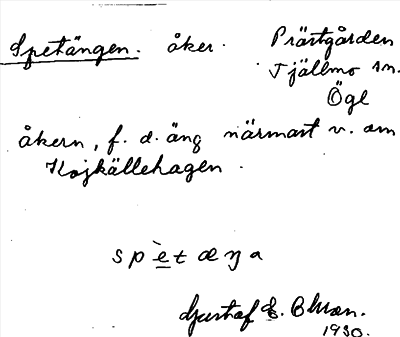 Spetängen. åker. Prästgården
Tjällmo sn.
Ögl
åkern, f. d. äng närmast v. om
Kojkällehagen.
spètæŋa
Gustaf E. Ohlson.
1930.